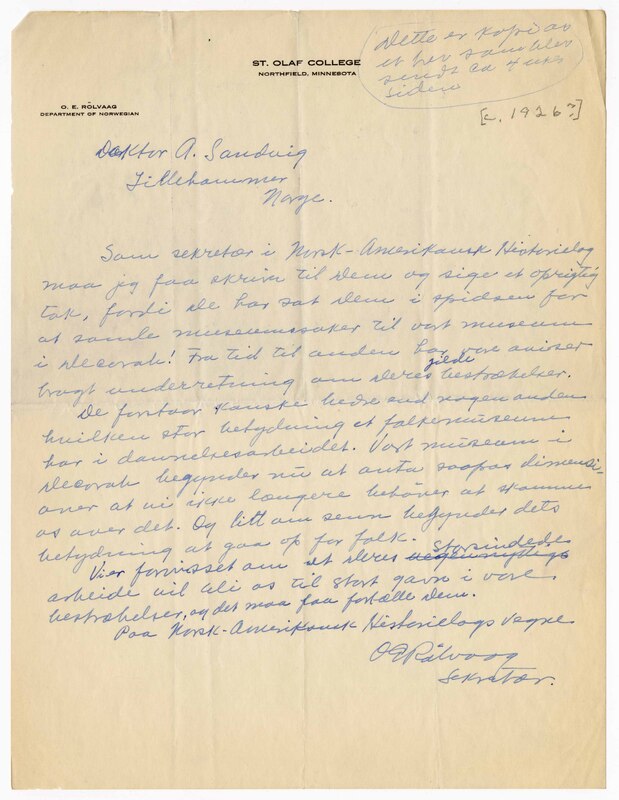 Dette er kopi av
et brev som blev
sendt ca 4 uker
siden
ST. OLAF COLLEGE
NORTHFIELD, MINNESOTA
[c. 1926?]
O. E. RÖLVAAG
DEPARTMENT OF NORWEGIAN
Doktor A. Sandvig
Lillehammer
Norge.
Som sekretær i Norsk-Amerikansk Historielag
maa jeg faa skrive til Dem og sige et oprigtig
tak, fordi De har sat Dem i spidsen for
at samle museumssaker til vort museum
i Decorah! Fra tid til anden har vore aviser
bragt underretning om Deres gjilde bestræbelser.
De forstaar kanske bedre end nogen anden
hvilken stor betydning et folkemuseum
har i dannelsesarbeidet. Vort museum i
Decorah begynder nu at anta saapas dimensi-
oner at vi ikke længere behöver at skamme
os over det. Og litt om senn begynder dets
betydning at gaa op for folk.
Vi er forvisset om at Deres storsindede
arbeide vil bli os til stort gavn i vore
bestræbelser, og det maa jeg faa fortælle Dem.
Paa Norsk-Amerikansk Historielags vegne
O E Rölvaag
Sekretær.